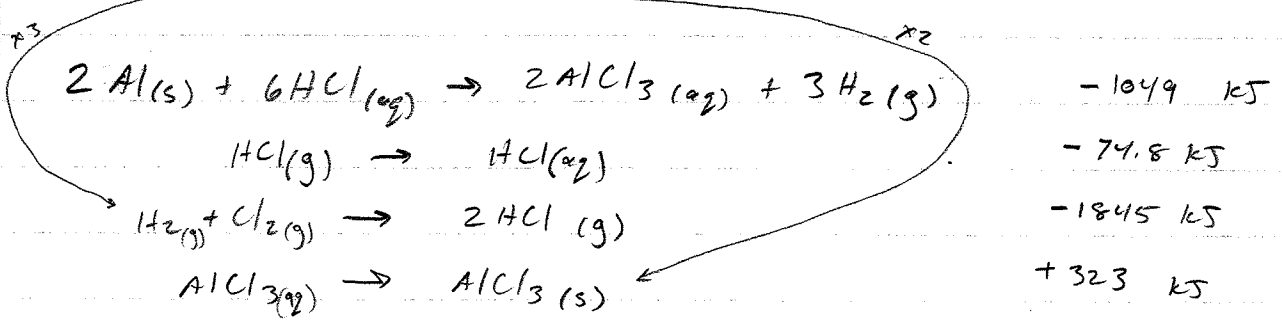 x3 x2
2 Al(s) + 6HCl(aq) → 2AlCl3 (aq) + 3H2(g) -1049 kJ
HCl(g) → HCl(aq) -74.8 kJ
H2(g) + Cl2(g) → 2 HCl (g) -1845 kJ
AlCl3(aq) → AlCl3 (s) +323 kJ